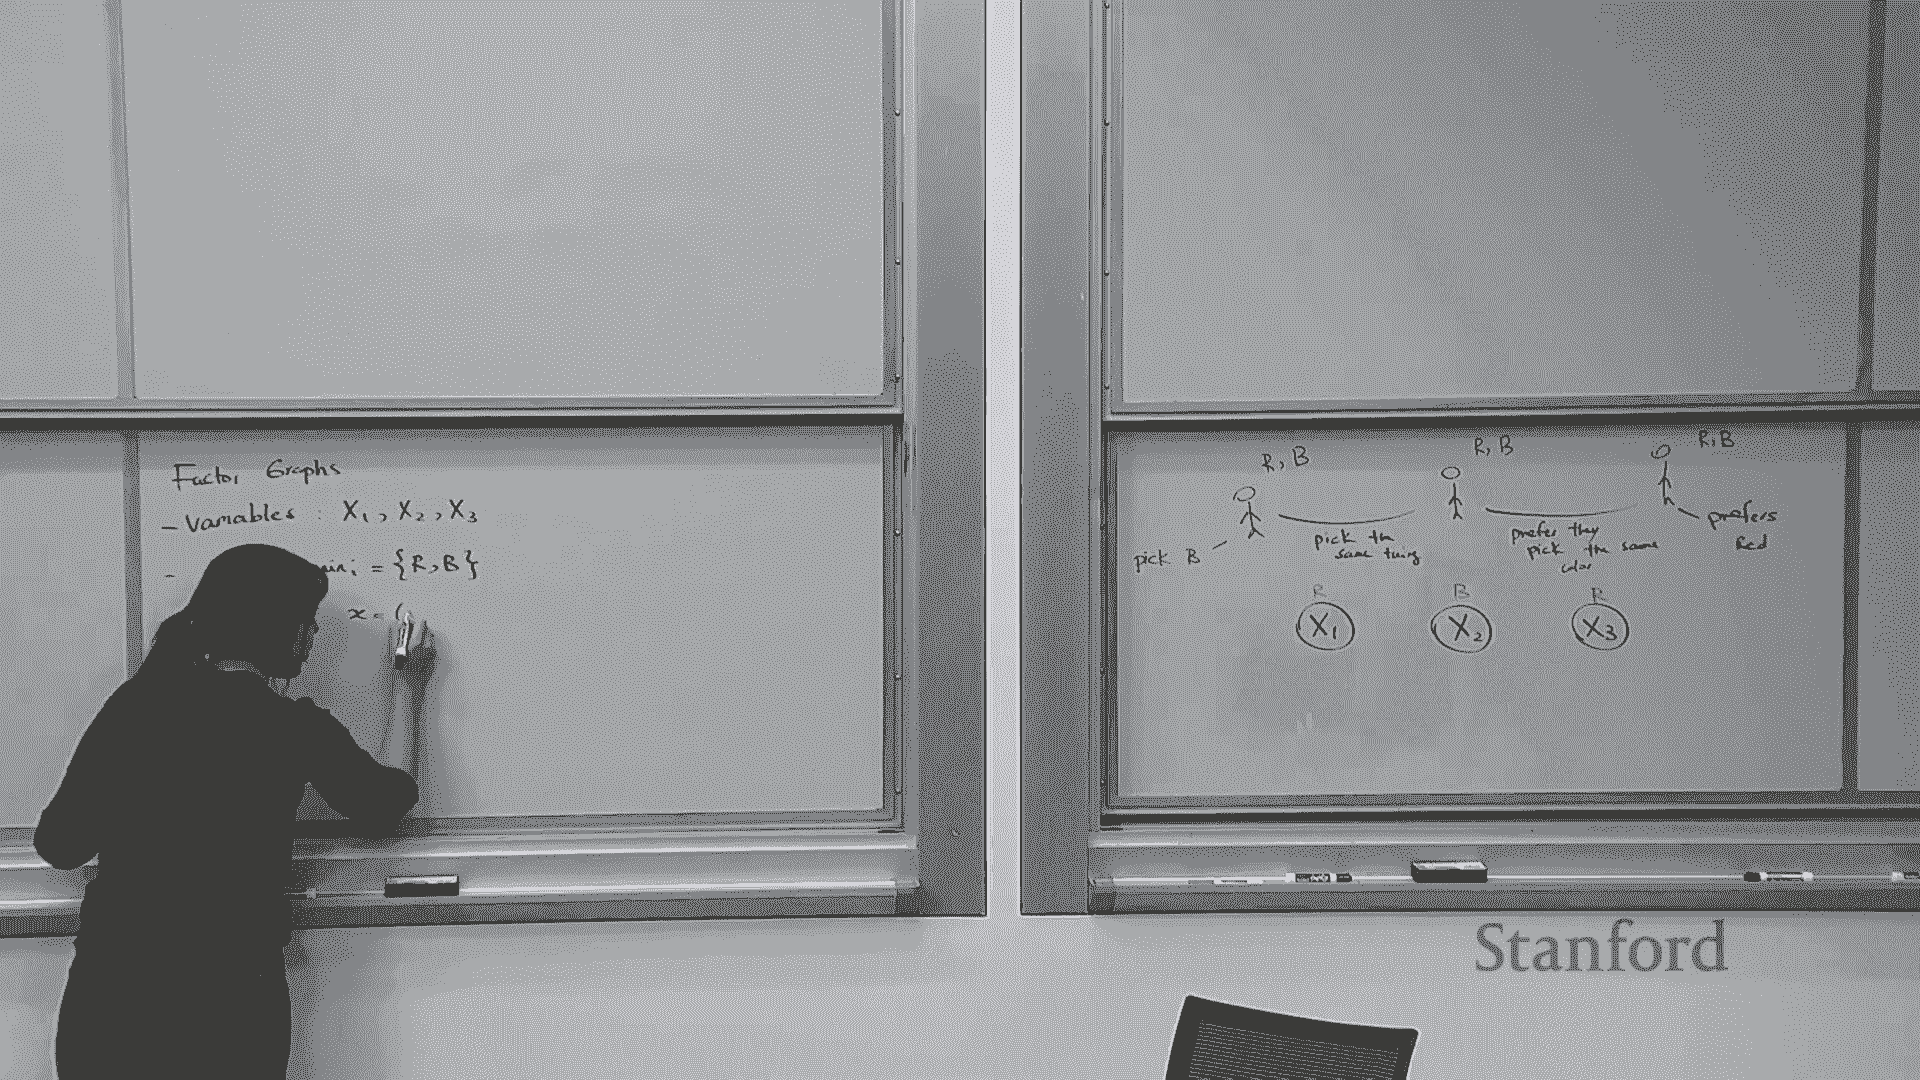 Factor Graphs
- Variables : X₁, X₂, X₃
- ini = {R, B}
x = (
R, B
R, B
R, B
pick B
pick the same thing
prefer they
pick the same
color
prefers
Red
R B R
X₁ X₂ X₃
Stanford